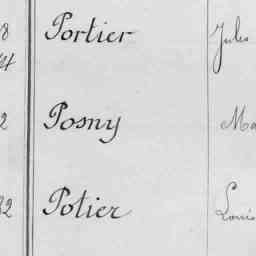 8 Portier Jules
4
2 Posny Ma
32 Potier Louis